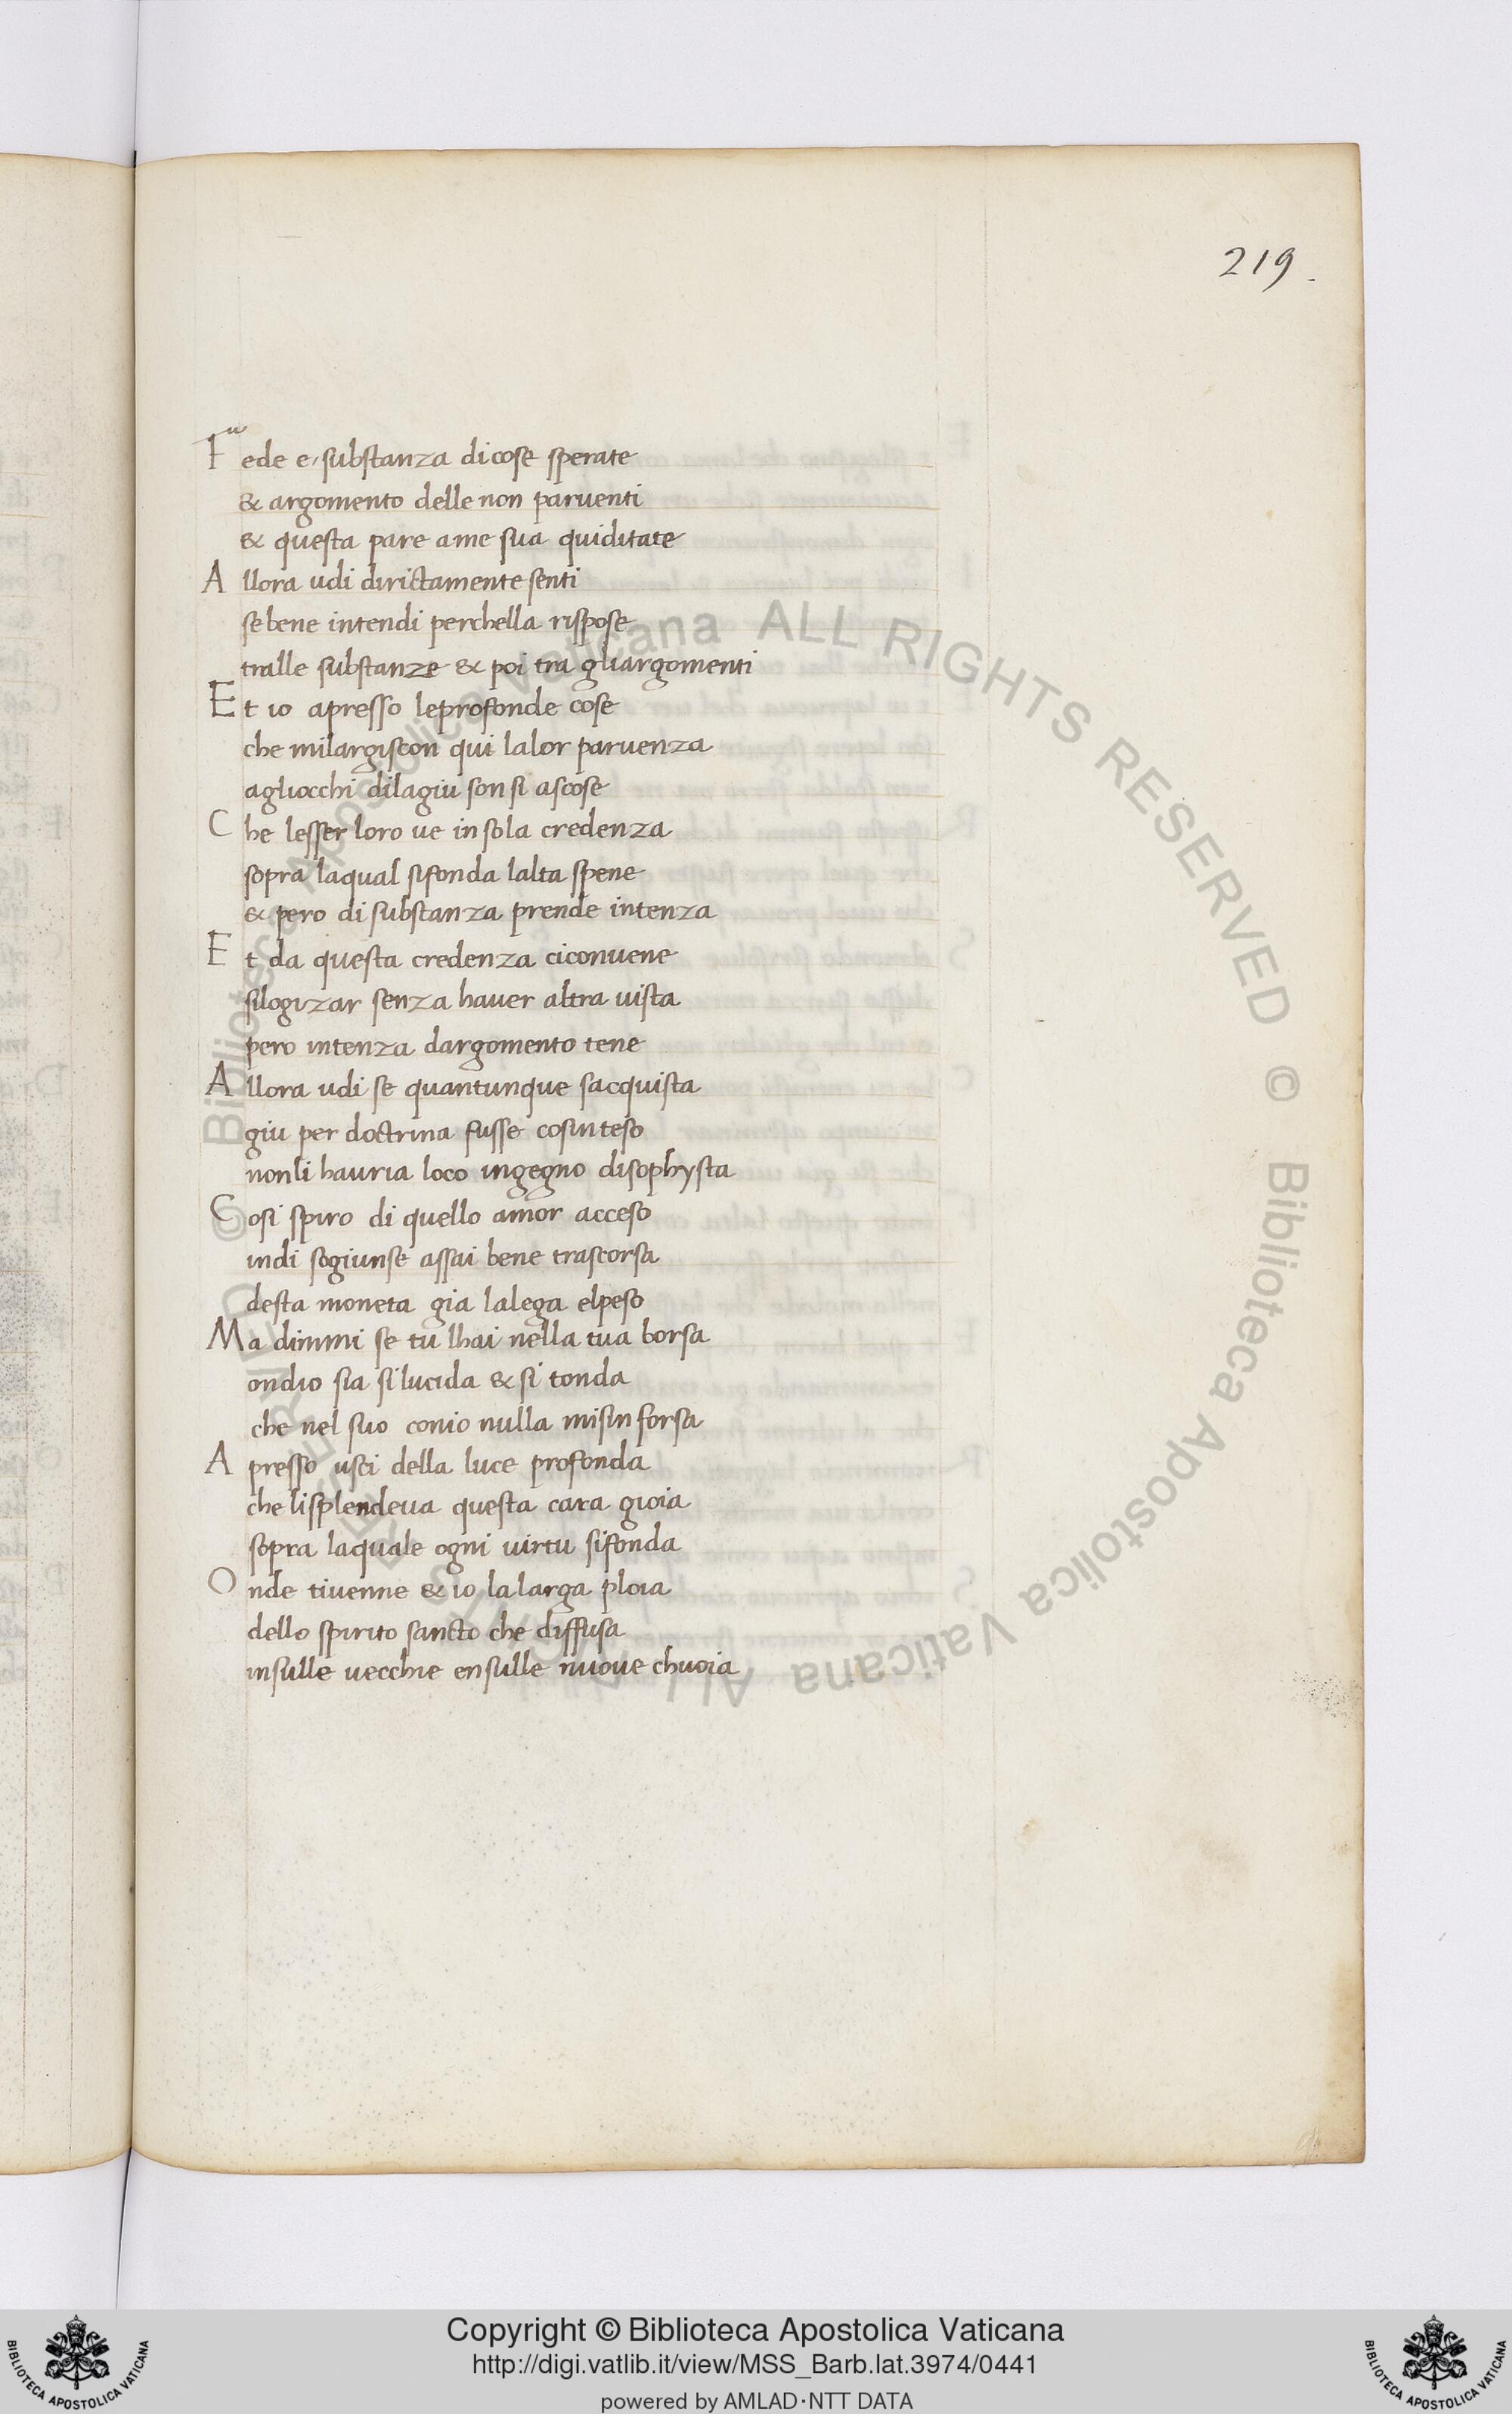 219.
Fede e substanza dicose sperate
& argomento delle non paruenti
& questa pare ame sua quiditate
Allora udi dirictamente senti
sebene intendi perchella rispose
tralle substanze & poi tra gliargomenti
Et io apresso leprofonde cose
che milargiscon qui lalor paruenza
agliocchi dilagiu son si ascose
Che lesser loro ue in sola credenza
sopra laqual sifonda lalta spene
& pero di substanza prende intenza
Et da questa credenza ciconuene
silogizar senza hauer altra uista
pero intenza dargomento tene
Allora udi se quantunque sacquista
giu per doctrina fusse cosinteso
nonli hauria loco ingegno disophysta
Cosi spiro di quello amor acceso
indi sogiunse assai bene trascorsa
desta moneta gia lalega elpeso
Ma dimmi se tu lhai nella tua borsa
ondio sia si lucida & si tonda
che nel suo conio nulla misinforsa
Apresso usci della luce profonda
che lisplendeua questa cara gioia
sopra laquale ogni uirtu sifonda
Onde tiuenne & io lalarga ploia
dello spirito sancto che diffusa
insulle uecchie ensulle nuoue chuoia
© Biblioteca Apostolica Vaticana ALL RIGHTS RESERVED © Biblioteca Apostolica Vaticana ALL RIGHTS RESERVED
Copyright © Biblioteca Apostolica Vaticana
http://digi.vatlib.it/view/MSS_Barb.lat.3974/0441
powered by AMLAD·NTT DATA
BIBLIOTECA APOSTOLICA VATICANA
BIBLIOTECA APOSTOLICA VATICANA